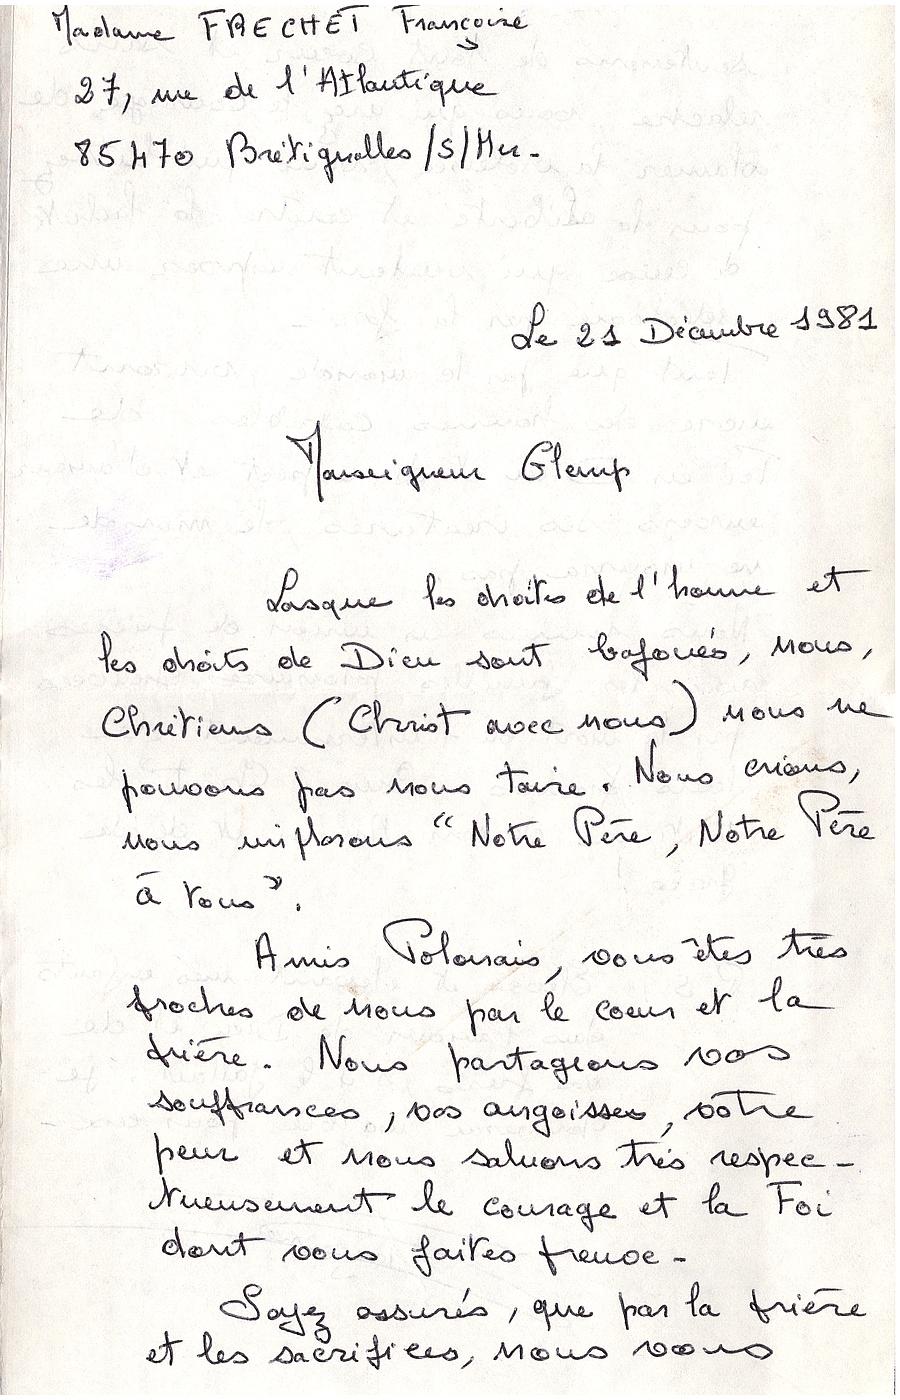 Madame FRECHET Françoise
27, rue de l'Atlantique
85470 Brétignolles /S/Mer.
Le 21 Décembre 1981
Monseigneur Glemp
Lorsque les droits de l'homme et
les droits de Dieu sont bafoués, nous,
Chrétiens (Christ avec nous) nous ne
pouvons pas nous taire. Nous crions,
nous implorons "Notre Père, Notre Père
à tous".
Amis Polonais, vous êtes très
proches de nous par le coeur et la
prière. Nous partageons vos
souffrances, vos angoisses, votre
peur et nous saluons très respec-
tueusement le courage et la Foi
dont vous faites preuve-
Soyez assurés, que par la prière
et les sacrifices, nous vous